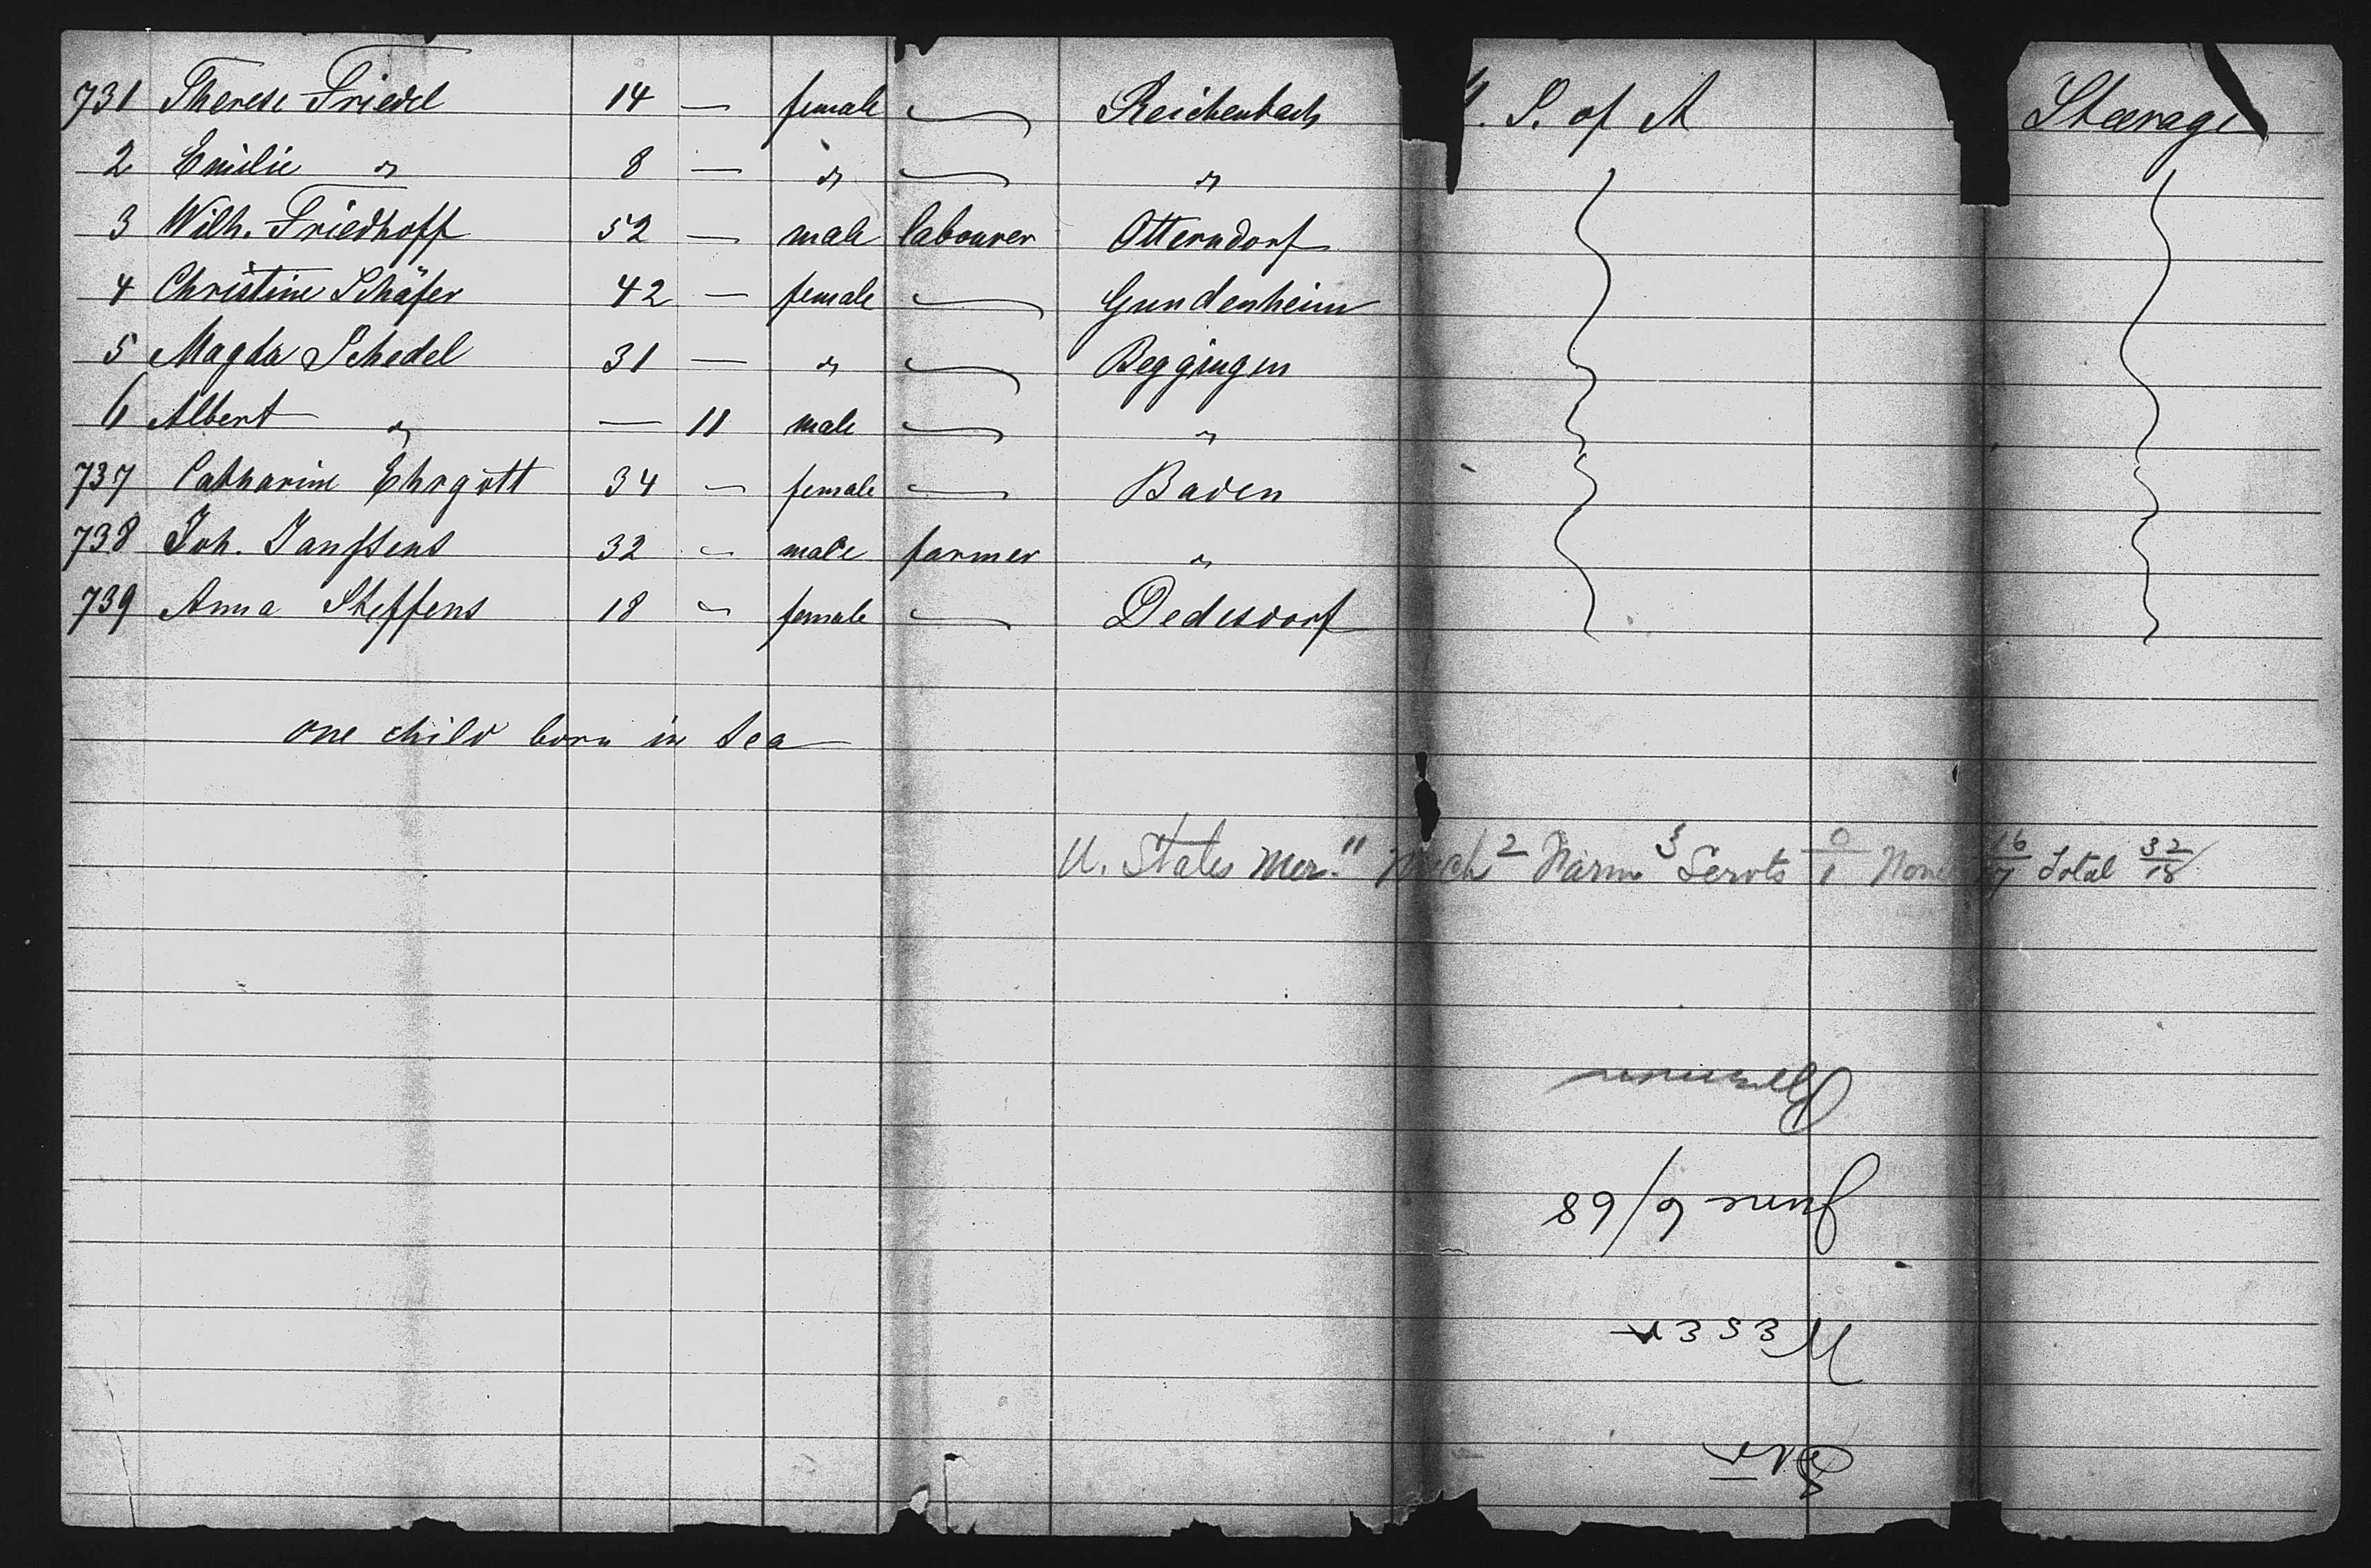 731 Therese Friedel 14 — female — Reichenbach U. S. of A Steerage
2 Emilie " 8 — " — "
3 Wilh. Friedhoff 52 — male labourer Otterndorf
4 Christine Schäfer 42 — female — Gundenheim
5 Magda Schedel 31 — " — Beggingen
6 Albert " — 11 male — "
737 Catharine Ehrgott 34 — female — Baden
738 Joh. Janssens 32 — male farmer "
739 Anna Steffens 18 — female — Dedesdorf
one child born in sea
U. States Mer. " Mech 2 Farm 3 Servts 0/1 None 16/17 Total 32/18
June 6/68
Weser